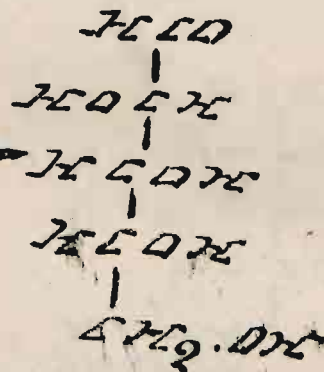 HCO
HOCH
HCOH
HCOH
CH2.OH